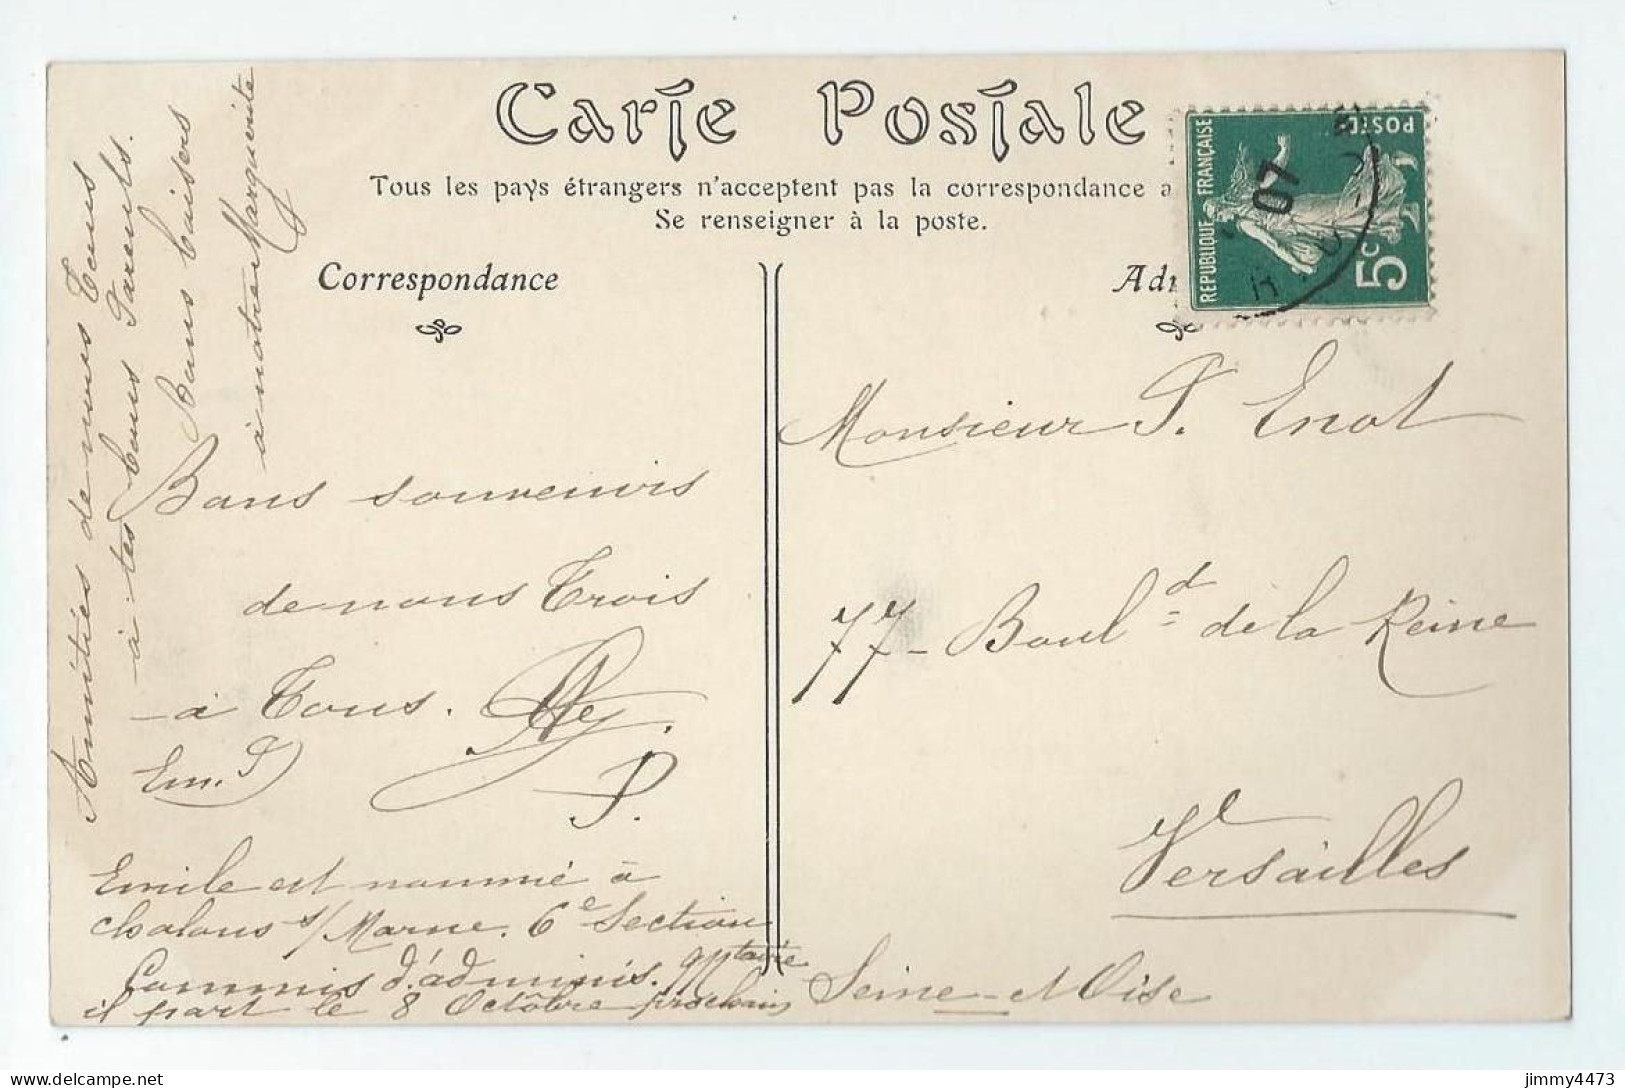 Carte Postale
Tous les pays étrangers n'acceptent pas la correspondance a
Se renseigner à la poste.
Correspondance
Ad
REPUBLIQUE FRANÇAISE
POSTES
5c
07
Amitiés de nous Tous
à tes bons Parents.
Bons baisers
à notre Marguerite
Bons souvenirs
de nous Trois
à Tous.
Em. P
P.
Emile est nommé à
chalons s/Marne. 6e Section
Commis d'adminis.
il part le 8 Octôbre prochain
Monsieur P. Enot
77 - Boul.d de la Reine
Versailles
Seine-et Oise
delcampe.net
jimmy4473